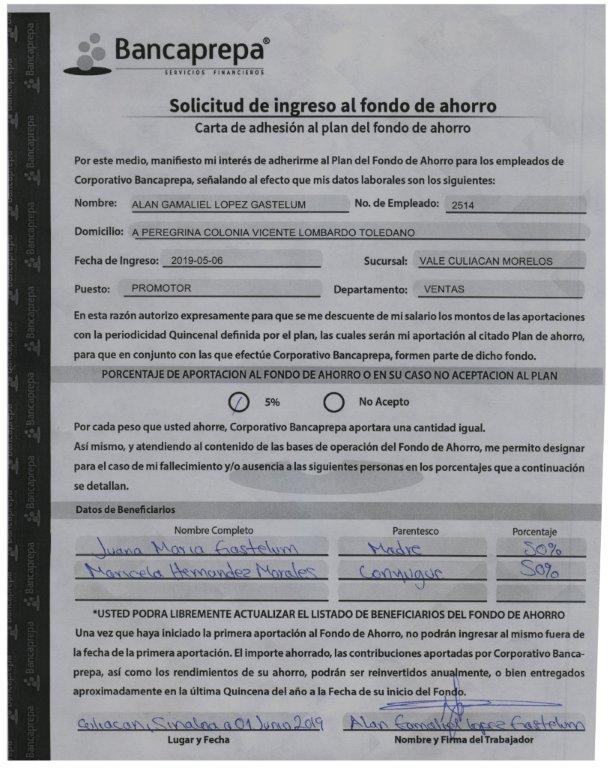 Bancaprepa®
SERVICIOS FINANCIEROS
Solicitud de ingreso al fondo de ahorro
Carta de adhesión al plan del fondo de ahorro
Por este medio, manifiesto mi interés de adherirme al Plan del Fondo de Ahorro para los empleados de
Corporativo Bancaprepa, señalando al efecto que mis datos laborales son los siguientes:
Nombre: ALAN GAMALIEL LOPEZ GASTELUM No. de Empleado: 2514
Domicilio: A PEREGRINA COLONIA VICENTE LOMBARDO TOLEDANO
Fecha de Ingreso: 2019-05-06 Sucursal: VALE CULIACAN MORELOS
Puesto: PROMOTOR Departamento: VENTAS
En esta razón autorizo expresamente para que se me descuente de mi salario los montos de las aportaciones
con la periodicidad Quincenal definida por el plan, las cuales serán mi aportación al citado Plan de ahorro,
para que en conjunto con las que efectúe Corporativo Bancaprepa, formen parte de dicho fondo.
PORCENTAJE DE APORTACION AL FONDO DE AHORRO O EN SU CASO NO ACEPTACION AL PLAN
5% No Acepto
Por cada peso que usted ahorre, Corporativo Bancaprepa aportara una cantidad igual.
Así mismo, y atendiendo al contenido de las bases de operación del Fondo de Ahorro, me permito designar
para el caso de mi fallecimiento y/o ausencia a las siguientes personas en los porcentajes que a continuación
se detallan.
Datos de Beneficiarios
Nombre Completo Parentesco Porcentaje
Juana Maria Gastelum Madre 50%
Maricela Hernandez Morales Conyugue 50%
*USTED PODRA LIBREMENTE ACTUALIZAR EL LISTADO DE BENEFICIARIOS DEL FONDO DE AHORRO
Una vez que haya iniciado la primera aportación al Fondo de Ahorro, no podrán ingresar al mismo fuera de
la fecha de la primera aportación. El importe ahorrado, las contribuciones aportadas por Corporativo Banca-
prepa, así como los rendimientos de su ahorro, podrán ser reinvertidos anualmente, o bien entregados
aproximadamente en la última Quincena del año a la Fecha de su inicio del Fondo.
Culiacan, Sinaloa a 01 Junio 2019 Alan Gamaliel Lopez Gastelum
Lugar y Fecha Nombre y Firma del Trabajador